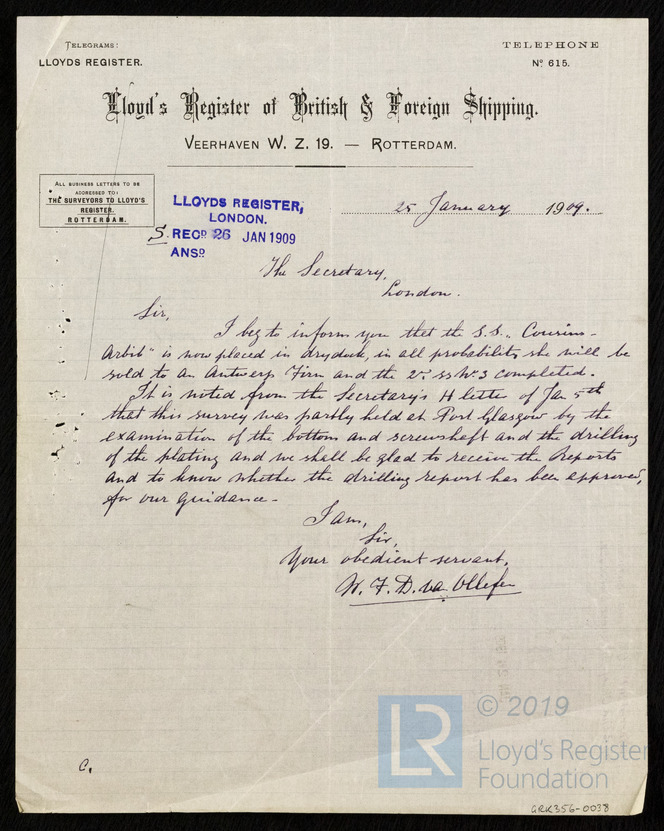 TELEGRAMS:
LLOYDS REGISTER.
TELEPHONE
No 615.
Lloyd's Register of British & Foreign Shipping.
VEERHAVEN W. Z. 19. — ROTTERDAM.
ALL BUSINESS LETTERS TO BE
ADDRESSED TO:
THE SURVEYORS TO LLOYD'S
REGISTER.
ROTTERDAM.
LLOYDS REGISTER,
LONDON.
S. RECD 26 JAN 1909
ANSD
25 January 1909.
The Secretary,
London.
Sir,
I beg to inform you that the S.S. „ Cousins-
Arbib" is now placed in drydock, in all probability she will be
sold to an Antwerp Firm and the 2nd ss No 3 completed.
It is noted from the Secretary's H letter of Jan 5th
that this survey was partly held at Port Glasgow by the
examination of the bottom and screwshaft and the drilling
of the plating and we shall be glad to receive the Reports
and to know whether the drilling report has been approved,
for our guidance -
I am,
Sir,
Your obedient servant,
W. F. D. van Ollefen
C.
LR
© 2019
Lloyd's Register
Foundation
GRK356-0038